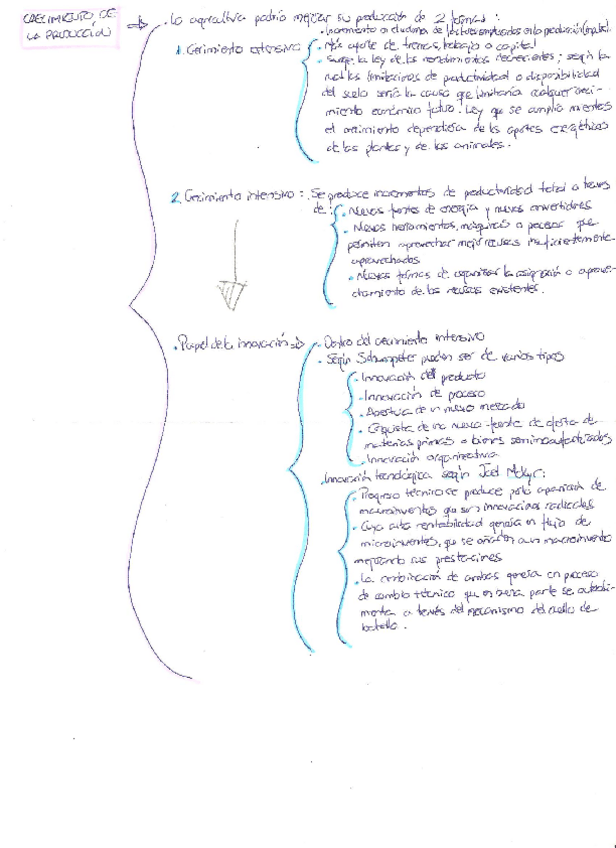 CRECIMIENTO DE
LA PRODUCCIÓN
. La agricultura podría mejorar su producción de 2 formas:
. Incremento o de los factores empleados en la producción (inputs).
1. Crecimiento extensivo
. Más aporte de tierras, trabajo o capital
. Surge la ley de los rendimientos decrecientes; según la
cual las limitaciones de productividad o disponibilidad
del suelo sería la causa que limitaría cualquier creci-
miento económico futuro. Ley que se amplió mientras
el crecimiento dependiera de los aportes energéticos
de las plantas y de los animales.
2. Crecimiento intensivo: Se produce incrementos de productividad total a través
de:
. Nuevas fuentes de energía y nuevos convertidores
. Nuevas herramientas, máquinas o procesos que
permiten aprovechar mejor recursos insuficientemente
aprovechados
. Nuevas formas de organizar la asignación o aprove-
chamiento de los recursos existentes.
. Papel de la innovación
. Dentro del crecimiento intensivo
. Según Schumpeter pueden ser de varios tipos
. Innovación del producto
. Innovación de proceso
. Apertura de un nuevo mercado
. Conquista de una nueva fuente de oferta de
materias primas o bienes semimanufacturados
. Innovación organizativa
. Innovación tecnológica según Joel Mokyr:
. Progreso técnico se produce por la aparición de
macroinventos que son innovaciones radicales
. Cuya alta rentabilidad genera un flujo de
microinventos, que se añaden a un macroinvento
mejorando sus prestaciones
. La combinación de ambas genera un proceso
de cambio técnico que en parte se autoali-
menta a través del mecanismo del cuello de
botella.